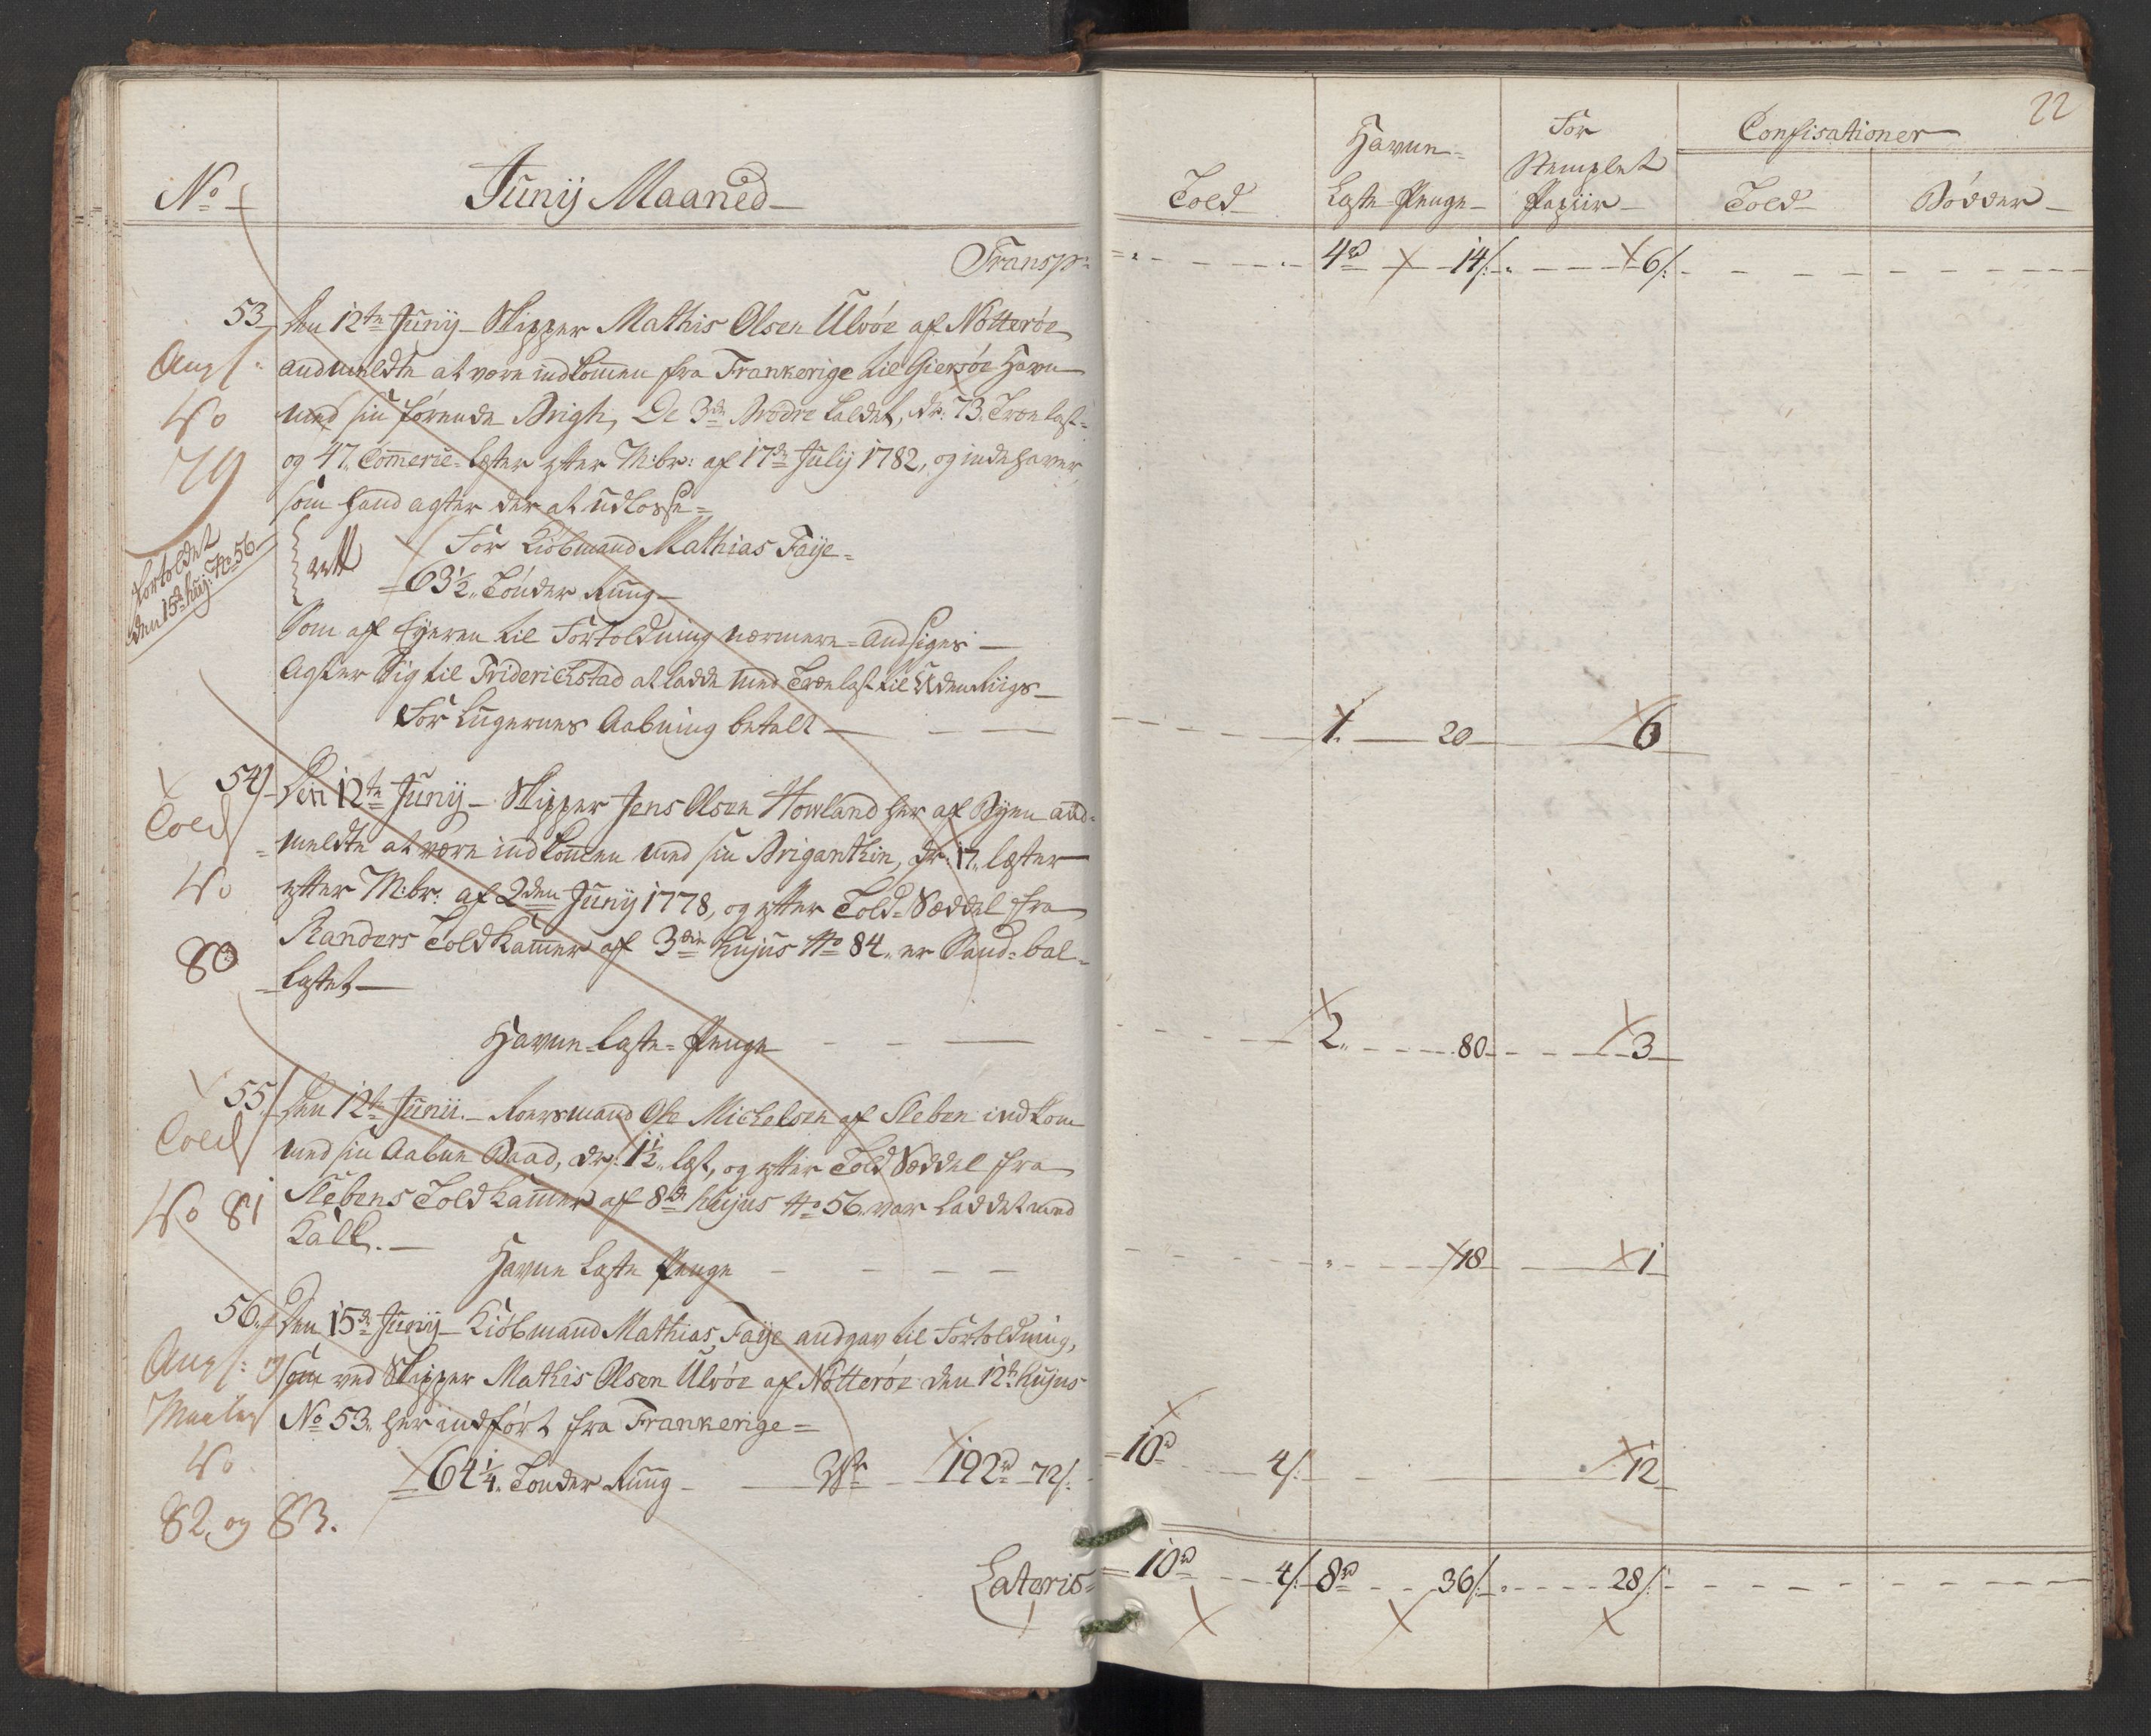 22
No
Junij Maaned
Told
Havne-
Laste-Penge
For
Stemplet
Papiir
Confisationer
Told
Bödder
Transp:
4rd 14/. 6/.
53. Den 12te Junij Skipper Mathis Olsen Ulvöe af Nötteröe
andmeldte at være indkommen fra Frankerige til Giersöe Havn
med sin förende Brigh, De 3de Brödre kaldet, dr: 73 Trælast-
og 47. Commercie-læster efter M:br: af 17de Julij 1782, og indehaver,
som hand agter der at udlosse=
No
79
For Kiöbmand Mathias Faye=
63½. Tönder Rug
fortoldet
den 15de huj: No 56
Som af Eyeren til Fortoldning nærmere andsiges
Agter Sig til Friderichstad at ladde med Trælast til Udenriigs
For Lugernes Aabning betalt
1. 20 6
54. Den 12te Junij Skipper Jens Olsen Howland her af Byen and-
meldte at være indkommen med sin Briganthin, dr: 17. læster
efter M:br: af 2den Junij 1778, og efter Told-Sæddel fra
Randers Toldkammer af 3die hujus No 84. er Sand-bal-
lastet
No
80
Havne-Laste-Penge
2. 80 3
55. Den 12te Junii. Roersmand Ole Michelsen af Sleben indkom
med sin Aabne Baad, dr: 1½. læst, og efter Told Sæddel fra
Slebens Toldkammer af 8de hujus No 56. var laddet med
Kalk.
No 81
Havne Laste Penge
18 1
56. Den 15de Junij Kiöbmand Mathias Faye andgav til Fortoldning,
som ved Skipper Mathis Olsen Ulvöe af Nötteröe den 12te hujus
No 53. her indfört fra Frankerige=
64¼. Tönder Rug 192rd 72/.
10rd 4/. 12
No
82. og 83.
Lateris
10rd 4/. 8rd 36/. 28/.